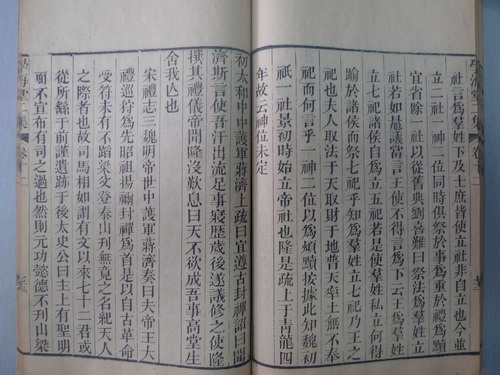 社言爲羣姓下及士庶皆使立社非自立也今並
立二社一神二位同時俱祭於事爲重於禮爲黷
宜省除一社以從舊典劉喜難曰祭法爲羣姓立
若如鼂議當言王使不得言爲下云王爲羣姓
立七祀諸侯自爲立五祀若是使羣姓私立何得
踰於諸侯而祭七祀乎知爲羣姓立七祀乃王之
祀也夫人取法于天取財于地普天率土無不奉
祀而何言乎一神二位以爲煩黷按據此知魏初
祇一社景初時始立帝社也隆是疏上于青龍四
年故云神位未定
初太和中中護軍蔣濟上疏曰宜遵古封禪詔曰聞
濟斯言使吾汗出流足事寢歷歲後遂議修之使隆
撰其禮儀帝聞隆沒歎息曰天不欲成吾事高堂生
舍我亾也
宋禮志三魏明帝世中護軍蔣濟奏曰夫帝王大
禮巡狩爲先昭祖揚禰封禪爲首是以自古革命
受符未有不蹈梁父登泰山刊無竟之名紀天人
之際者也故司馬相如謂有文以來七十二君或
從所繇于前謹遺跡于後太史公曰主上有聖明
而不宣布有司之過也然則元功懿德不刊山梁